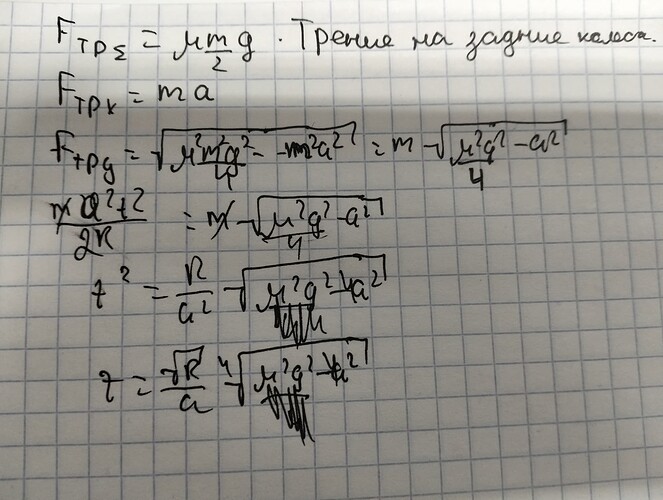 F_трΣ = μ m/2 g . Трение на задние колеса.
F_трк = m a
F_трц = √(μ²m²g²/4 - m²a²) = m √(μ²g²/4 - a²)
m a²t²/2R = m √(μ²g²/4 - a²)
t² = R/a² √(μ²g² - 4a²)
t = √R/a ⁴√(μ²g² - 4a²)